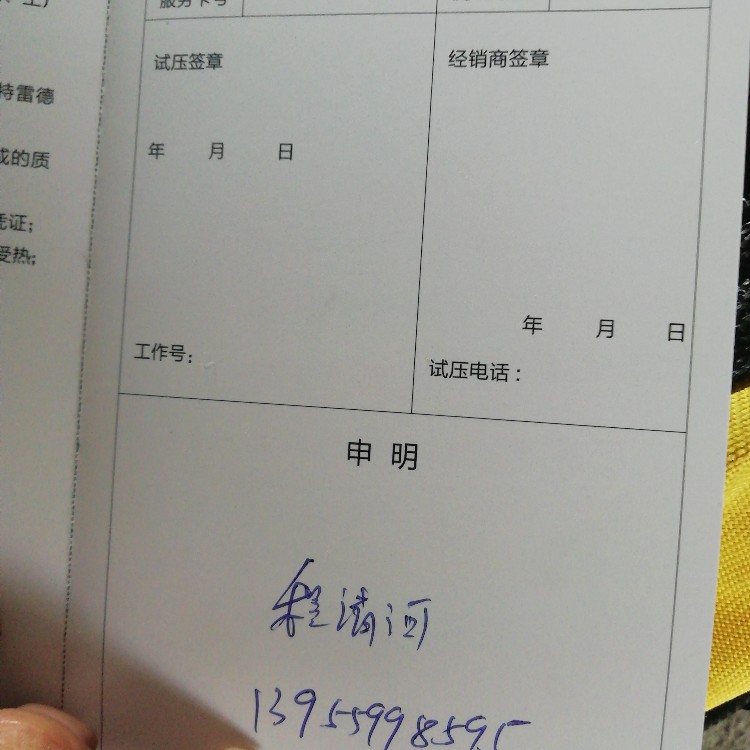 服务卡号
试压签章
经销商签章
年 月 日
年 月 日
工作号：
试压电话：
申 明
程清河
13955998595
特雷德
成的质
凭证；
受热；